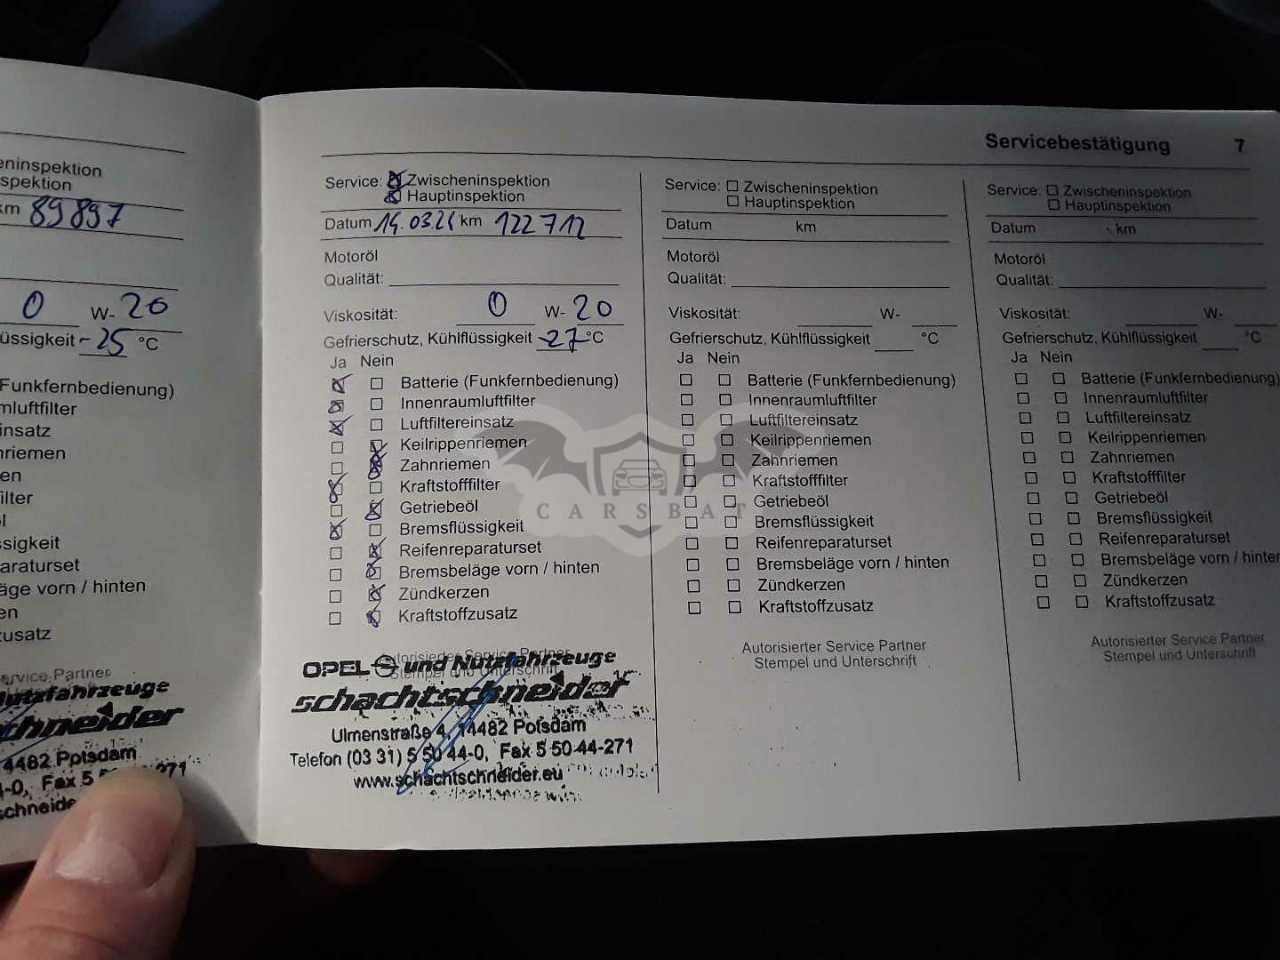 eninspektion
spektion
km 89897
0 W- 20
üssigkeit -25 °C
Funkfernbedienung)
mluftfilter
insatz
nriemen
en
ilter
l
sigkeit
araturset
äge vorn / hinten
en
zusatz
ervice Partner
Nutzfahrzeuge
chneider
4482 Potsdam
4-0, Fax 5 271
schneide
Servicebestätigung 7
Service: Zwischeninspektion
Hauptinspektion
Datum 14.03.21 km 122712
Motoröl
Qualität:
Viskosität: 0 W- 20
Gefrierschutz, Kühlflüssigkeit -27 °C
Ja Nein
Batterie (Funkfernbedienung)
Innenraumluftfilter
Luftfiltereinsatz
Keilrippenriemen
Zahnriemen
Kraftstofffilter
Getriebeöl
Bremsflüssigkeit
Reifenreparaturset
Bremsbeläge vorn / hinten
Zündkerzen
Kraftstoffzusatz
Autorisierter Service Partner
Stempel und Unterschrift
OPEL und Nutzfahrzeuge
schachtschneider
Ulmenstraße 4, 14482 Potsdam
Telefon (03 31) 5 50 44-0, Fax 5 50 44-271
www.schachtschneider.eu
Service: Zwischeninspektion
Hauptinspektion
Datum km
Motoröl
Qualität:
Viskosität: W-
Gefrierschutz, Kühlflüssigkeit °C
Ja Nein
Batterie (Funkfernbedienung)
Innenraumluftfilter
Luftfiltereinsatz
Keilrippenriemen
Zahnriemen
Kraftstofffilter
Getriebeöl
Bremsflüssigkeit
Reifenreparaturset
Bremsbeläge vorn / hinten
Zündkerzen
Kraftstoffzusatz
Autorisierter Service Partner
Stempel und Unterschrift
Service: Zwischeninspektion
Hauptinspektion
Datum km
Motoröl
Qualität:
Viskosität: W-
Gefrierschutz, Kühlflüssigkeit °C
Ja Nein
Batterie (Funkfernbedienung)
Innenraumluftfilter
Luftfiltereinsatz
Keilrippenriemen
Zahnriemen
Kraftstofffilter
Getriebeöl
Bremsflüssigkeit
Reifenreparaturset
Bremsbeläge vorn / hinten
Zündkerzen
Kraftstoffzusatz
Autorisierter Service Partner
Stempel und Unterschrift
CARSBAT